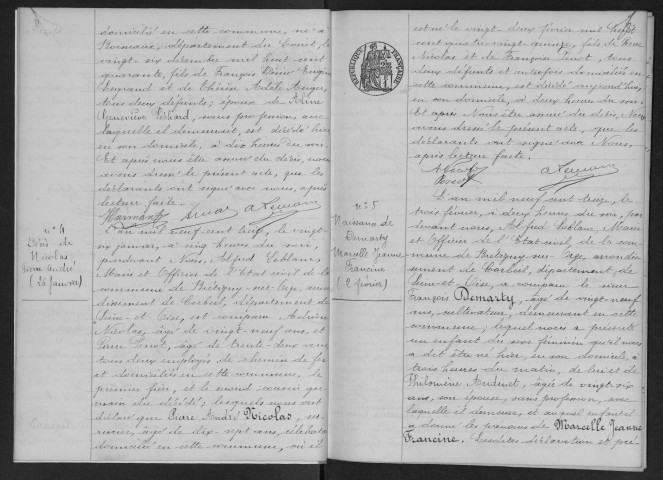 domicilié en cette commune, né à
département du Loiret, le
vingt six décembre mil huit cent
quarante, fils de François Désiré Eugène
Legrand et de Thérèse Adèle
tous deux défunts; époux de Aline
Geneviève sans profession, avec
laquelle il demeurait, est décédé hier
en son domicile, à dix heures du soir.
Et après nous être assuré du décès, nous
avons dressé le présent acte, que les
déclarants ont signé avec nous, après
lecture faite.
n° 4
Décès de
Nicolas
Pierre André
(26 Janvier)
L'an mil neuf cent treize, le vingt-
six janvier, à cinq heures du soir,
pardevant Nous, Alfred Leblanc,
Maire et Officier de l'Etat civil de la
commune de Brétigny-sur-Orge, arron-
dissement de Corbeil, département de
Seine-et-Oise, sont comparu
Nicolas, âgé de vingt-neuf ans, et
Pierre âgé de trente-deux ans
tous deux employés de chemin de fer
et domiciliés en cette commune, le
premier frère, et le second cousin ger-
main du décédé; lesquels nous ont
déclaré que Pierre André Nicolas,
âgé de dix-sept ans, célibataire
domicilié en cette commune, où il
est né le vingt-deux février mil huit
cent quatre vingt quinze, fils de Pierre
Nicolas et de Françoise tous
deux défunts et autrefois domiciliés en
cette commune, est décédé aujourd'hui,
en son domicile, à deux heures du soir.
Et après Nous être assuré du décès, Nous
avons dressé le présent acte, que les
déclarants ont signé avec Nous,
après lecture faite.
REPUBLIQUE FRANÇAISE
n° 5
Naissance de
Demarty
Marcelle Jeanne
Francine
(2 février)
L'an mil neuf cent treize, le
trois février, à deux heures du soir, par
devant nous, Alfred Leblanc, Maire
et Officier de l'Etat civil de la com-
mune de Brétigny-sur-Orge, arrondisse-
ment de Corbeil, département de
Seine-et-Oise, a comparu le sieur
François Demarty, âgé de vingt-neuf
ans, cultivateur, demeurant en cette
commune; lequel nous a présenté
un enfant du sexe féminin qu'il nous
a dit être né hier, en son domicile, à
trois heures du matin, de lui et de
Philomène âgée de vingt-six
ans, son épouse, sans profession, avec
laquelle il demeure, et auquel enfant il
a donné les prénoms de Marcelle Jeanne
Francine. Lesdites déclaration et pré-